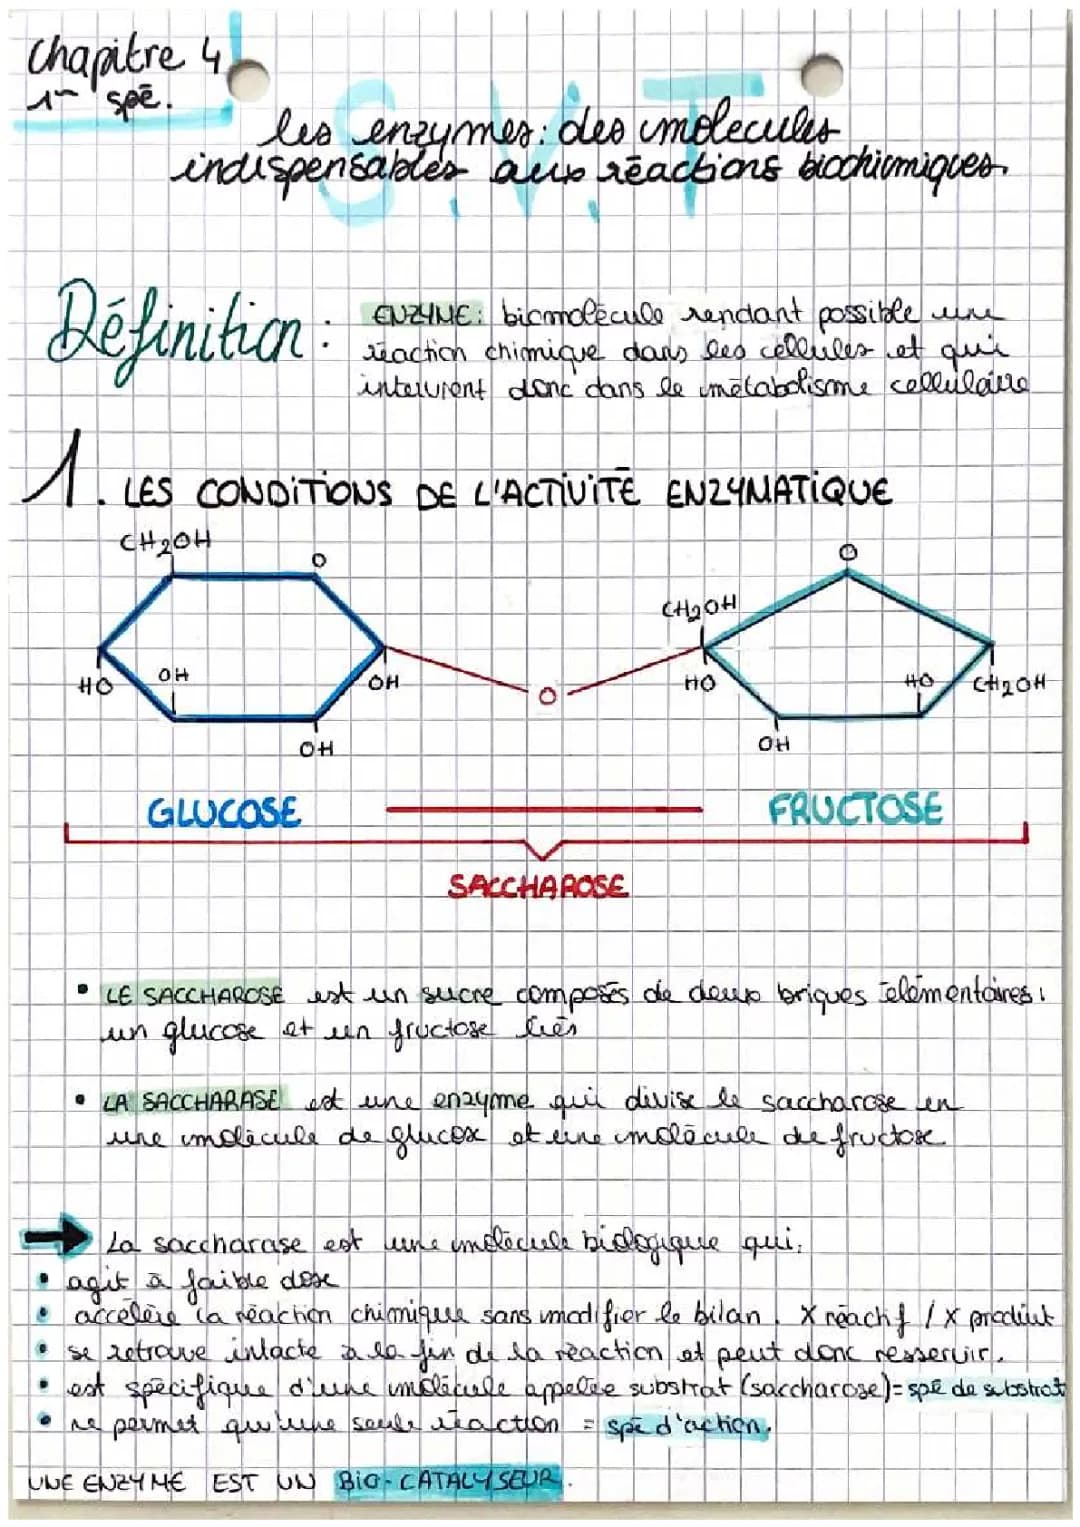 Chapitre 4
1re spé.
S.V.T
les enzymes: des molécules
indispensables aux réactions biochimiques.
Définition:
ENZYME: biomolécule rendant possible une
réaction chimique dans les cellules et qui
intervient donc dans le métabolisme cellulaire
1. LES CONDITIONS DE L'ACTIVITÉ ENZYMATIQUE
CH2OH
O
O
CH2OH
HO
OH
OH
O
HO
HO
CH2OH
OH
OH
GLUCOSE
FRUCTOSE
SACCHAROSE
• LE SACCHAROSE est un sucre composés de deux briques élémentaires:
un glucose et un fructose liés
• LA SACCHARASE est une enzyme qui divise le saccharose en
une molécule de glucose et une molécule de fructose
→ La saccharase est une molécule biologique qui:
• agit à faible dose
• accélère la réaction chimique sans modifier le bilan. X réactif / X produit
• se retrouve intacte à la fin de la réaction et peut donc resservir.
• est spécifique d'une molécule appelée substrat (saccharose) = spé de substrat
• ne permet qu'une seule réaction = spé d'action.
UNE ENZYME EST UN BIO-CATALYSEUR.